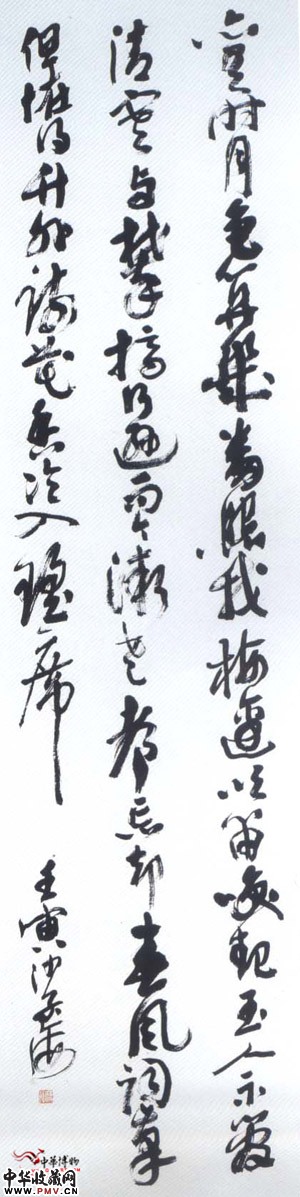 舊時月色算幾番照我梅邊吹笛喚起玉人不管
清寒与攀摘何遜而今漸老都忘却春風詞筆
但怪得竹外疏花香冷入瑶席
壬寅沙孟海
中華博物
中华收藏网
www.PMV.cn